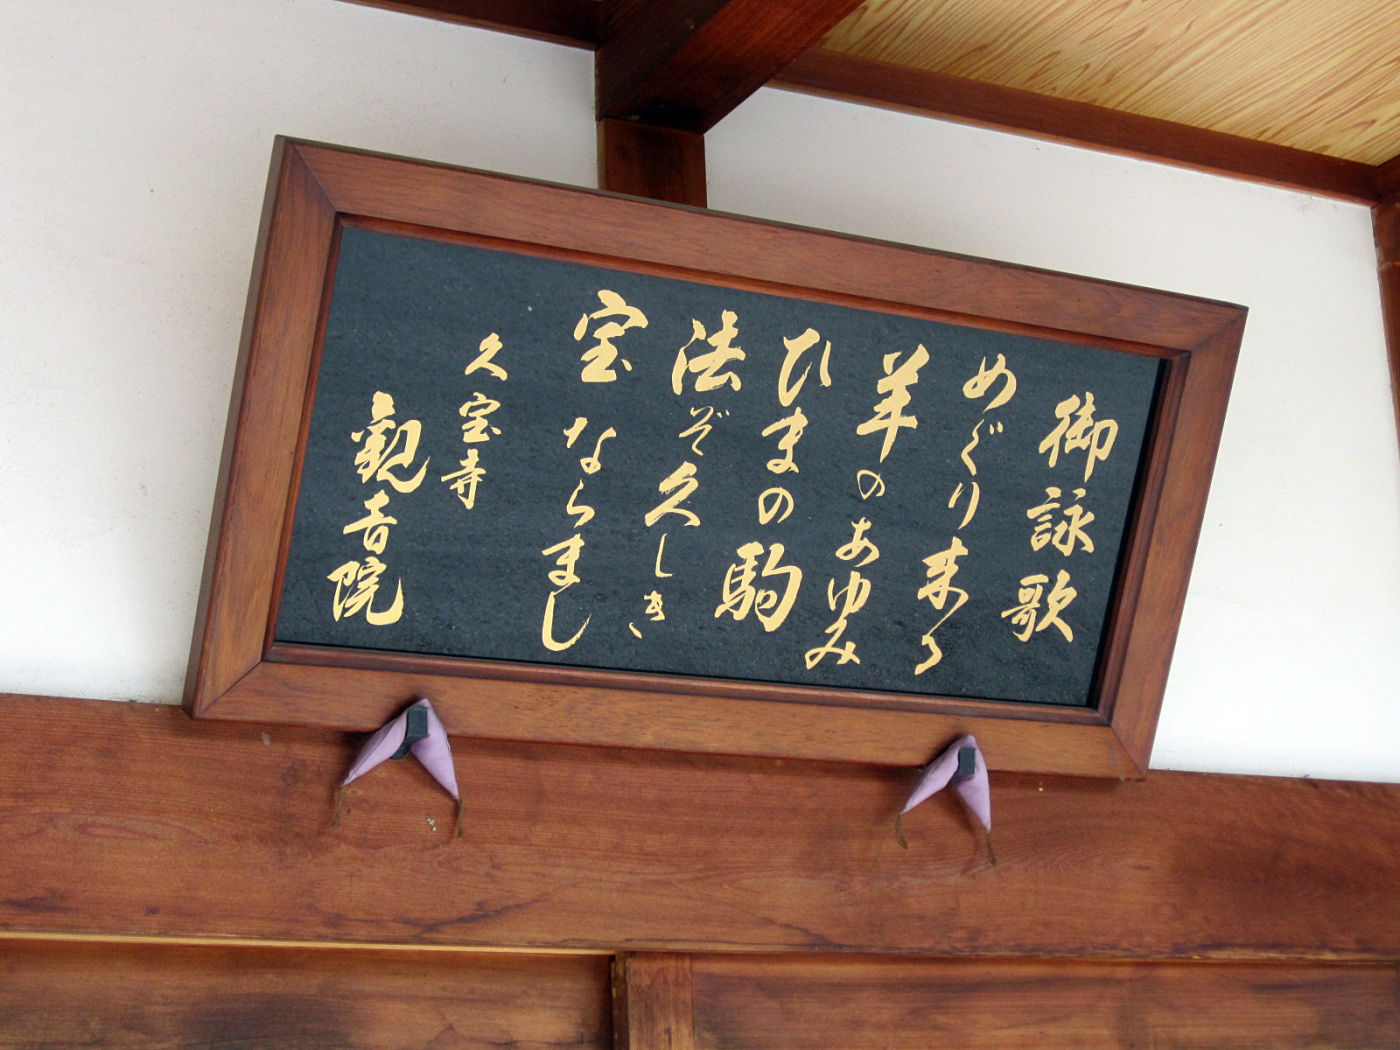 御詠歌
めぐり来る
羊のあゆみ
ひまの駒
法ぞ久しき
宝ならまし
久宝寺
観音院